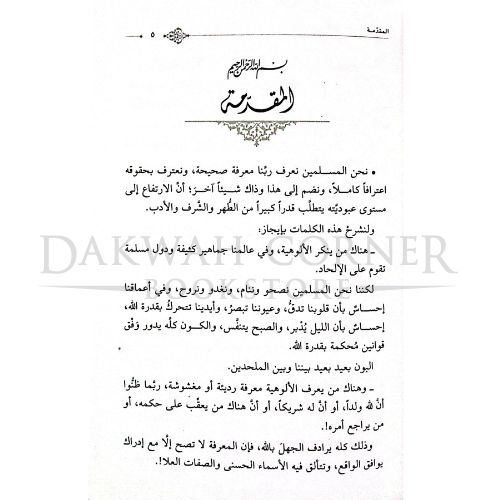 المقدّمة
٥
بسم الله الرحمن الرحيم
المقدّمة
• نحن المسلمين نعرف ربّنا معرفة صحيحة، ونعترف بحقوقه
اعترافاً كاملاً، ونضم إلى هذا وذاك شيئاً آخرَ؛ أنَّ الارتفاع إلى
مستوى عبوديّته يتطلَّب قدراً كبيراً من الطُّهر والشَّرف والأدب.
ولنشرحْ هذه الكلمات بإيجاز:
ـ هناك من ينكر الألوهية، وفي عالمنا جماهير كثيفة ودول مسلمة
تقوم على الإلحاد.
لكننا نحن المسلمين نصحو وننام، ونغدو ونروح، وفي أعماقنا
إحساسٌ بأن قلوبنا تدقُّ، وعيوننا تبصرُ، وأيدينا تتحركُ بقدرة الله،
إحساسٌ بأن الليل يُدْبر، والصبح يتنفَّس، والكون كلَّه يدور وَفْق
قوانين مُحكمة بقدرة الله.
البون بعيد بعيد بيننا وبين الملحدين.
ـ وهناك من يعرف الألوهية معرفة رديئة أو مغشوشة، ربَّما ظنُّوا
أنَّ لله ولداً، أو أنَّ له شريكاً، أو أنَّ هناك من يعقِّب على حكمه، أو
من يراجع أمره!.
وذلك كله يرادف الجهلَ بالله، فإن المعرفة لا تصح إلَّا مع إدراك
يوافق الواقع، وتتألق فيه الأسماء الحسنى والصفات العلا!.
DAKWAH CORNER
BOOKSTORE